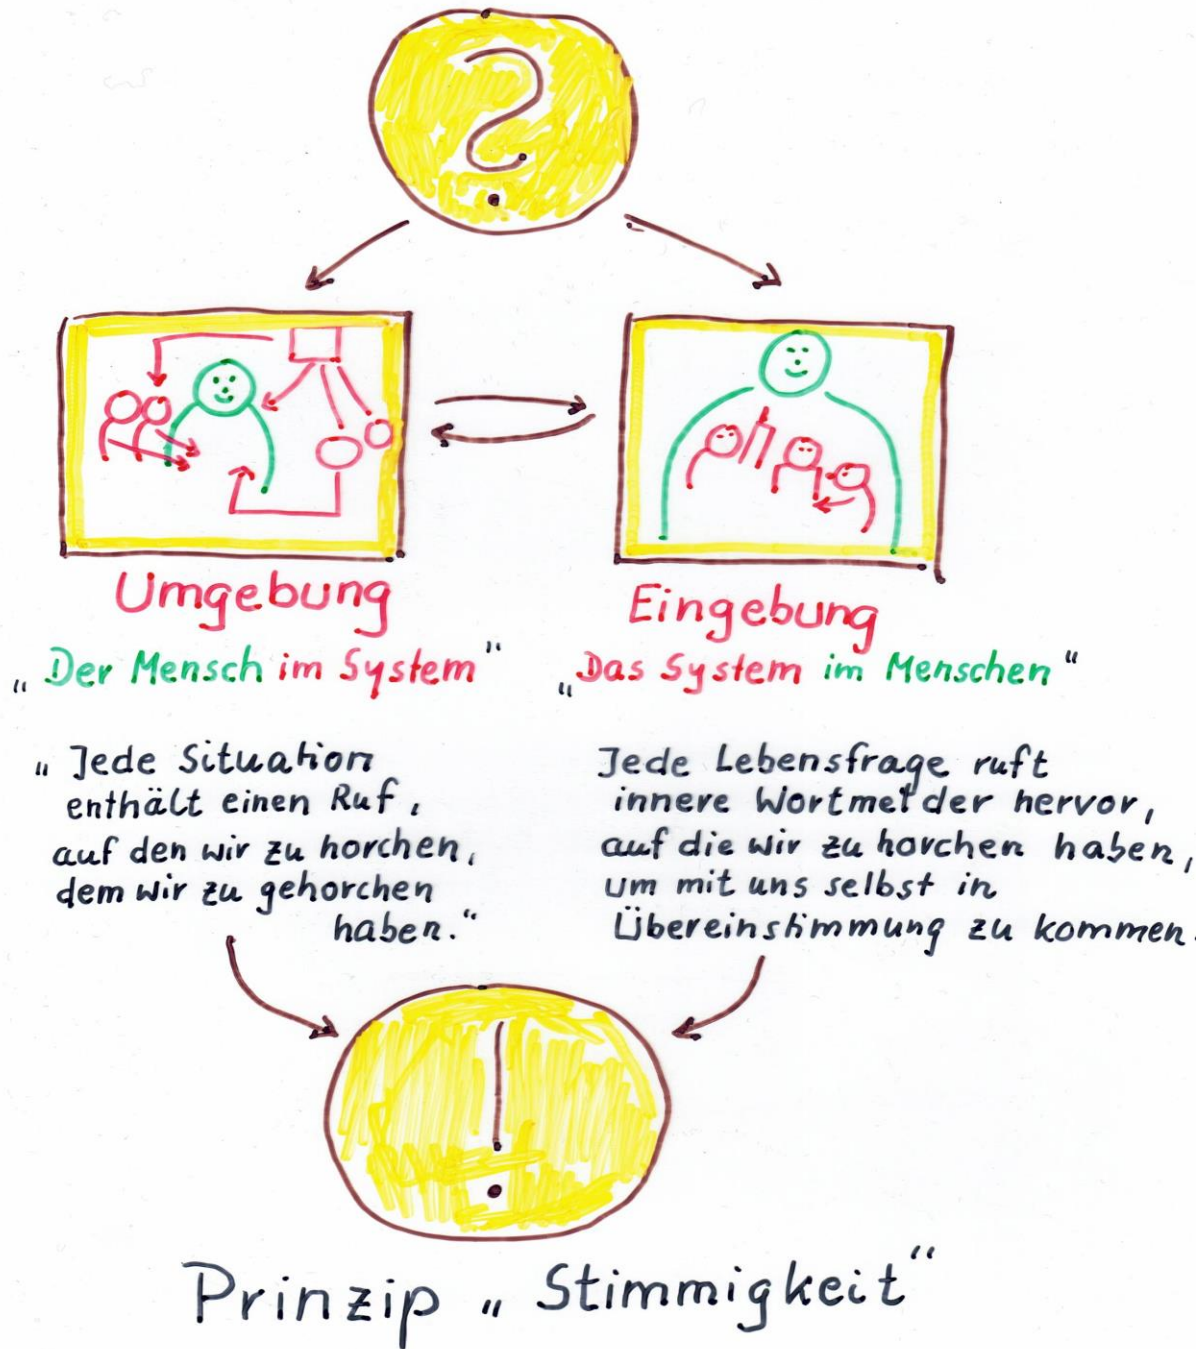 ?
Umgebung
„Der Mensch im System"
„Jede Situation
enthält einen Ruf,
auf den wir zu horchen,
dem wir zu gehorchen
haben."
Eingebung
„Das System im Menschen"
Jede Lebensfrage ruft
innere Wortmelder hervor,
auf die wir zu horchen haben,
um mit uns selbst in
Übereinstimmung zu kommen.
!
Prinzip „Stimmigkeit"